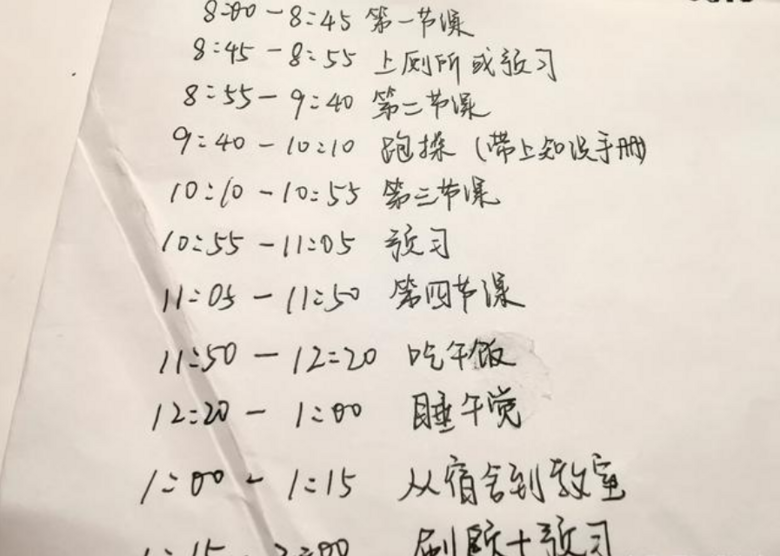 8:00-8:45 第一节课
8:45-8:55 上厕所或预习
8:55-9:40 第二节课
9:40-10:10 跑操（带上知识手册）
10:10-10:55 第三节课
10:55-11:05 预习
11:05-11:50 第四节课
11:50-12:20 吃午饭
12:20-1:00 睡午觉
1:00-1:15 从宿舍到教室
1:15-2:00 刷题+预习